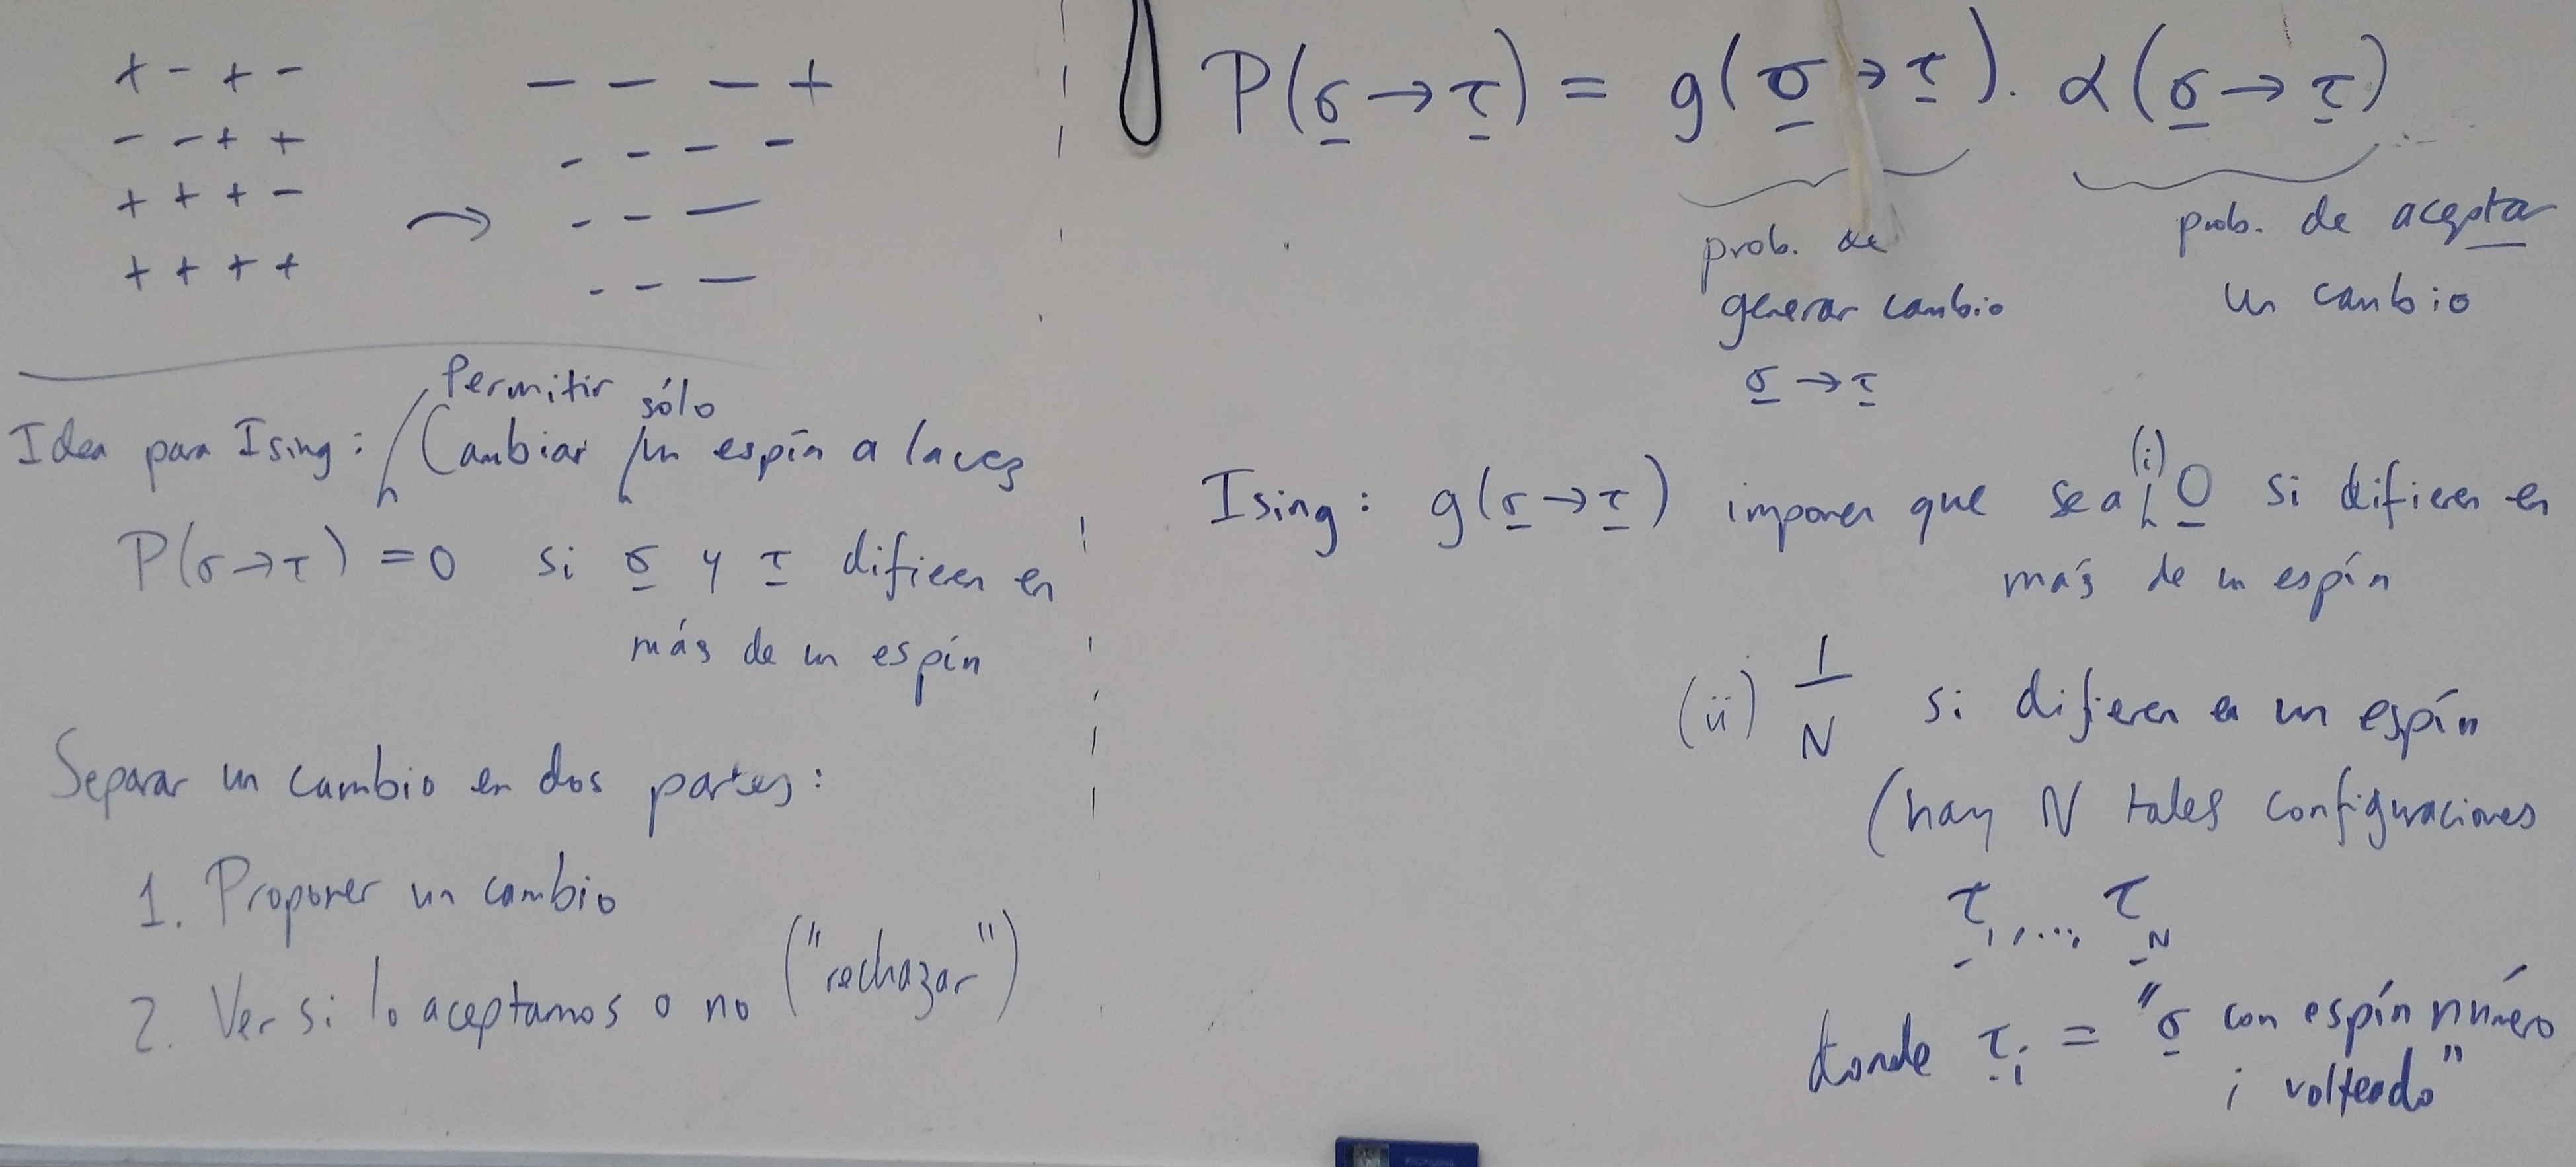 + - + -
- - + +
+ + + -
+ + + +
→
- - - +
- - - -
- - -
- - -
Idea para Ising: Permitir Cambiar sólo un espín a la vez
P(σ→τ) = 0 si σ y τ difieren en
más de un espín
Separar un cambio en dos partes:
1. Proponer un cambio
2. Ver si lo aceptamos o no ("rechazar")
P(σ→τ) = g(σ→τ) · α(σ→τ)
prob. de
generar cambio
σ→τ
prob. de aceptar
un cambio
Ising: g(σ→τ) imponer que sea (i) 0 si difieren en
más de un espín
(ii) 1/N si difieren en un espín
(hay N tales configuraciones
τ₁, ..., τ_N
donde τᵢ = "σ con espín número
i volteado"